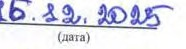 15.12.2025
(дата)